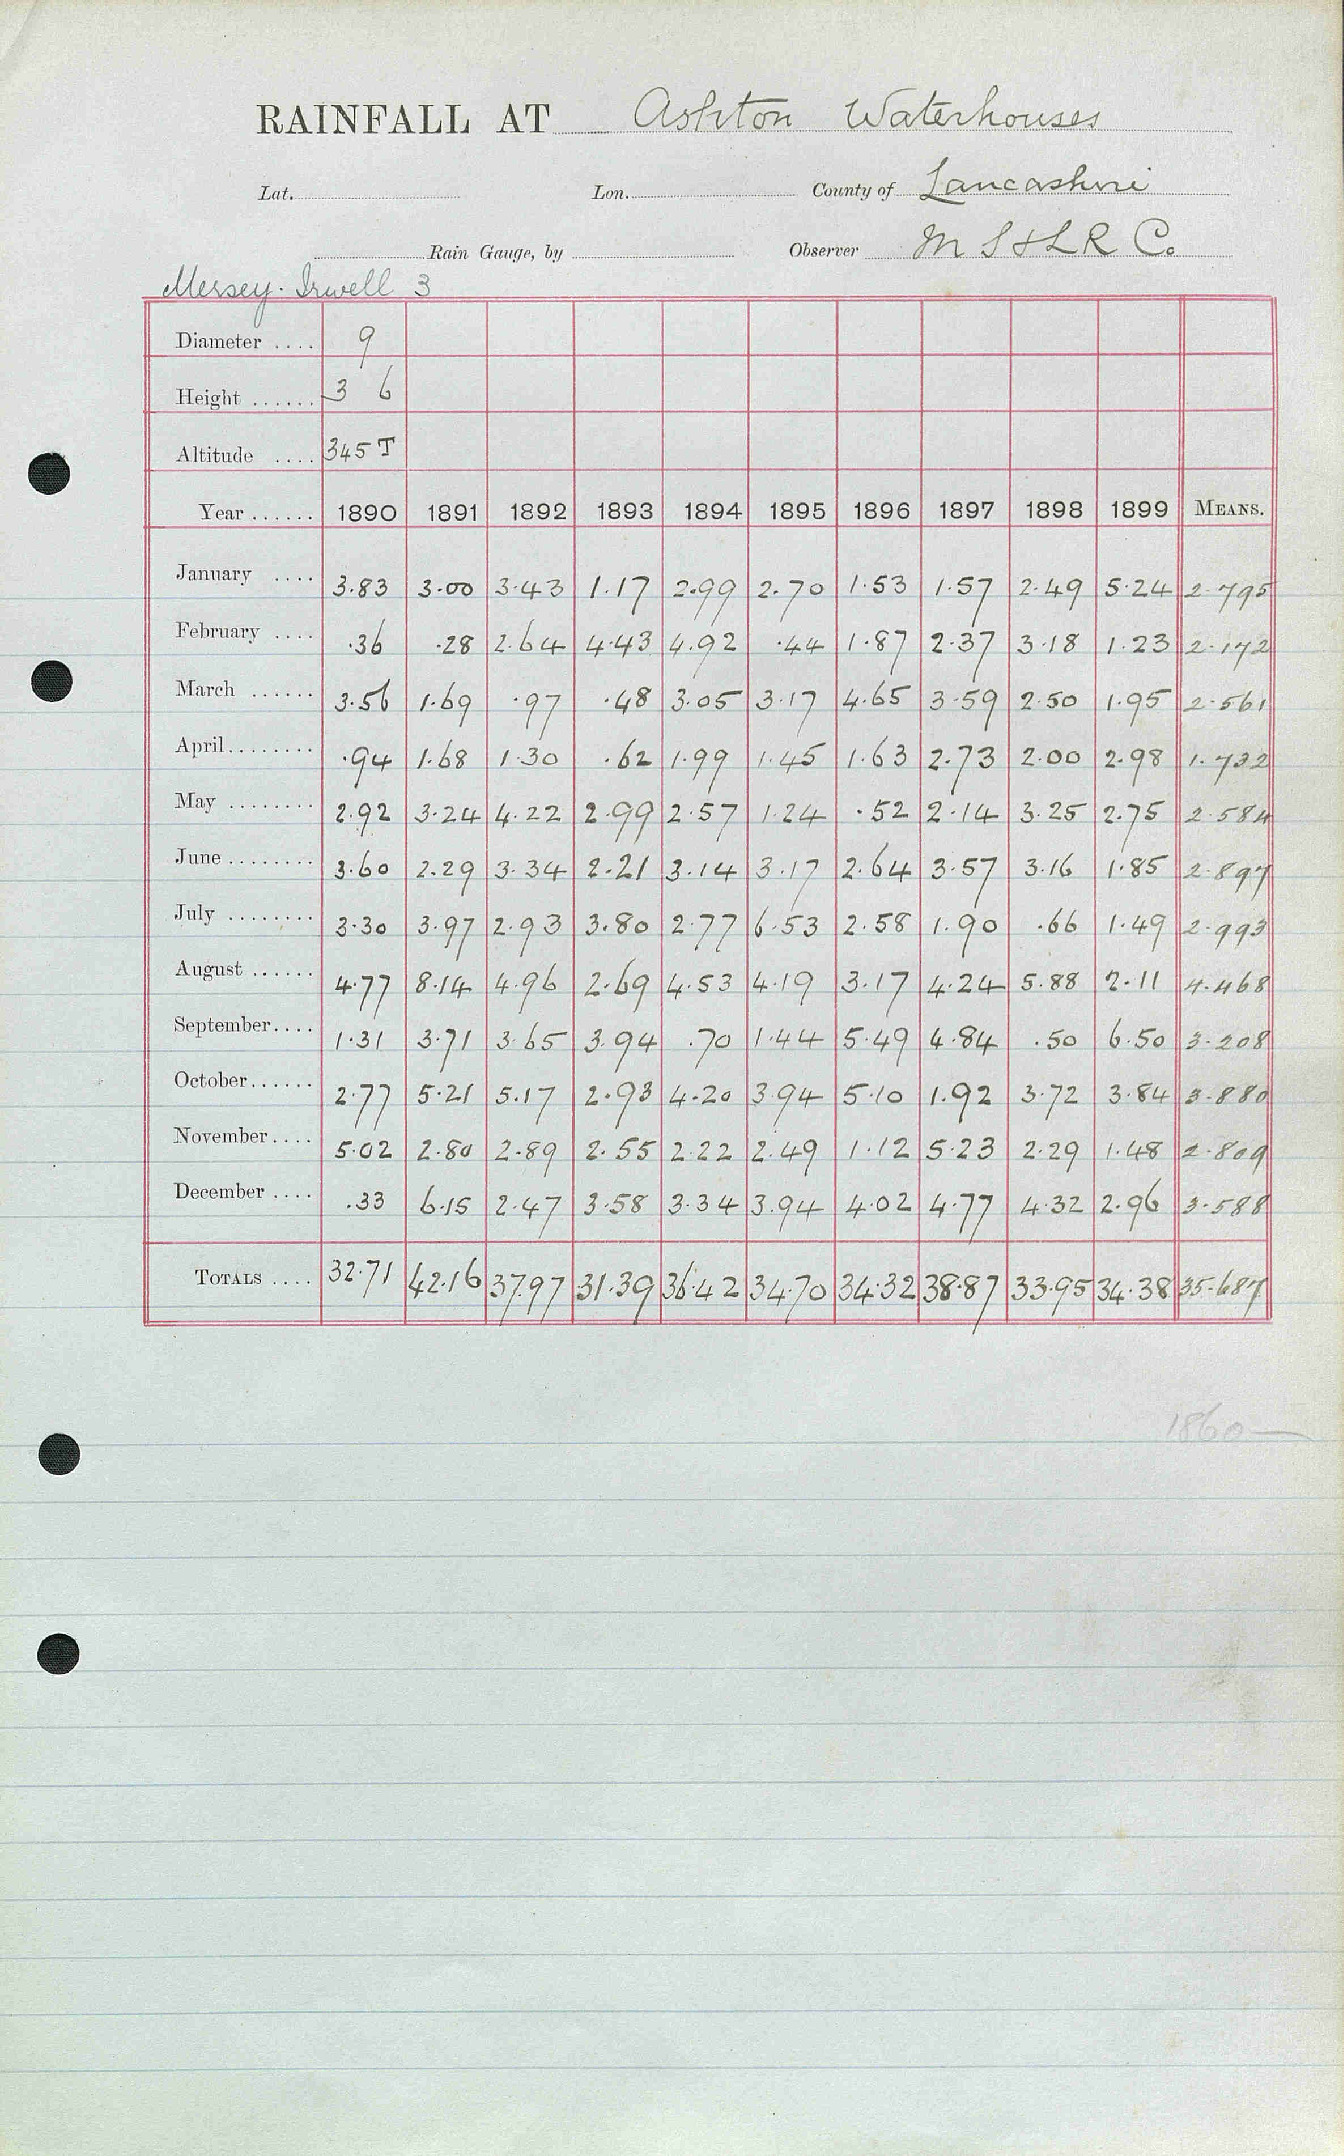 RAINFALL AT Ashton Waterhouses
Lat. Lon. County of Lancashire
Rain Gauge, by Observer M S & L R Co.
Mersey. Irwell 3
Diameter .... 9
Height ...... 3 6
Altitude .... 345 T
Year ...... 1890 1891 1892 1893 1894 1895 1896 1897 1898 1899 MEANS.
January .... 3.83 3.00 3.43 1.17 2.99 2.70 1.53 1.57 2.49 5.24 2.795
February .... .36 .28 2.64 4.43 4.92 .44 1.87 2.37 3.18 1.23 2.172
March ...... 3.56 1.69 .97 .48 3.05 3.17 4.65 3.59 2.50 1.95 2.561
April ........ .94 1.68 1.30 .62 1.99 1.45 1.63 2.73 2.00 2.98 1.732
May ........ 2.92 3.24 4.22 2.99 2.57 1.24 .52 2.14 3.25 2.75 2.584
June ........ 3.60 2.29 3.34 2.21 3.14 3.17 2.64 3.57 3.16 1.85 2.897
July ........ 3.30 3.97 2.93 3.80 2.77 6.53 2.58 1.90 .66 1.49 2.993
August ...... 4.77 8.14 4.96 2.69 4.53 4.19 3.17 4.24 5.88 2.11 4.468
September .... 1.31 3.71 3.65 3.94 .70 1.44 5.49 4.84 .50 6.50 3.208
October ...... 2.77 5.21 5.17 2.93 4.20 3.94 5.10 1.92 3.72 3.84 3.880
November .... 5.02 2.80 2.89 2.55 2.22 2.49 1.12 5.23 2.29 1.48 2.809
December .... .33 6.15 2.47 3.58 3.34 3.94 4.02 4.77 4.32 2.96 3.588
TOTALS .... 32.71 42.16 37.97 31.39 36.42 34.70 34.32 38.87 33.95 34.38 35.687
1860—